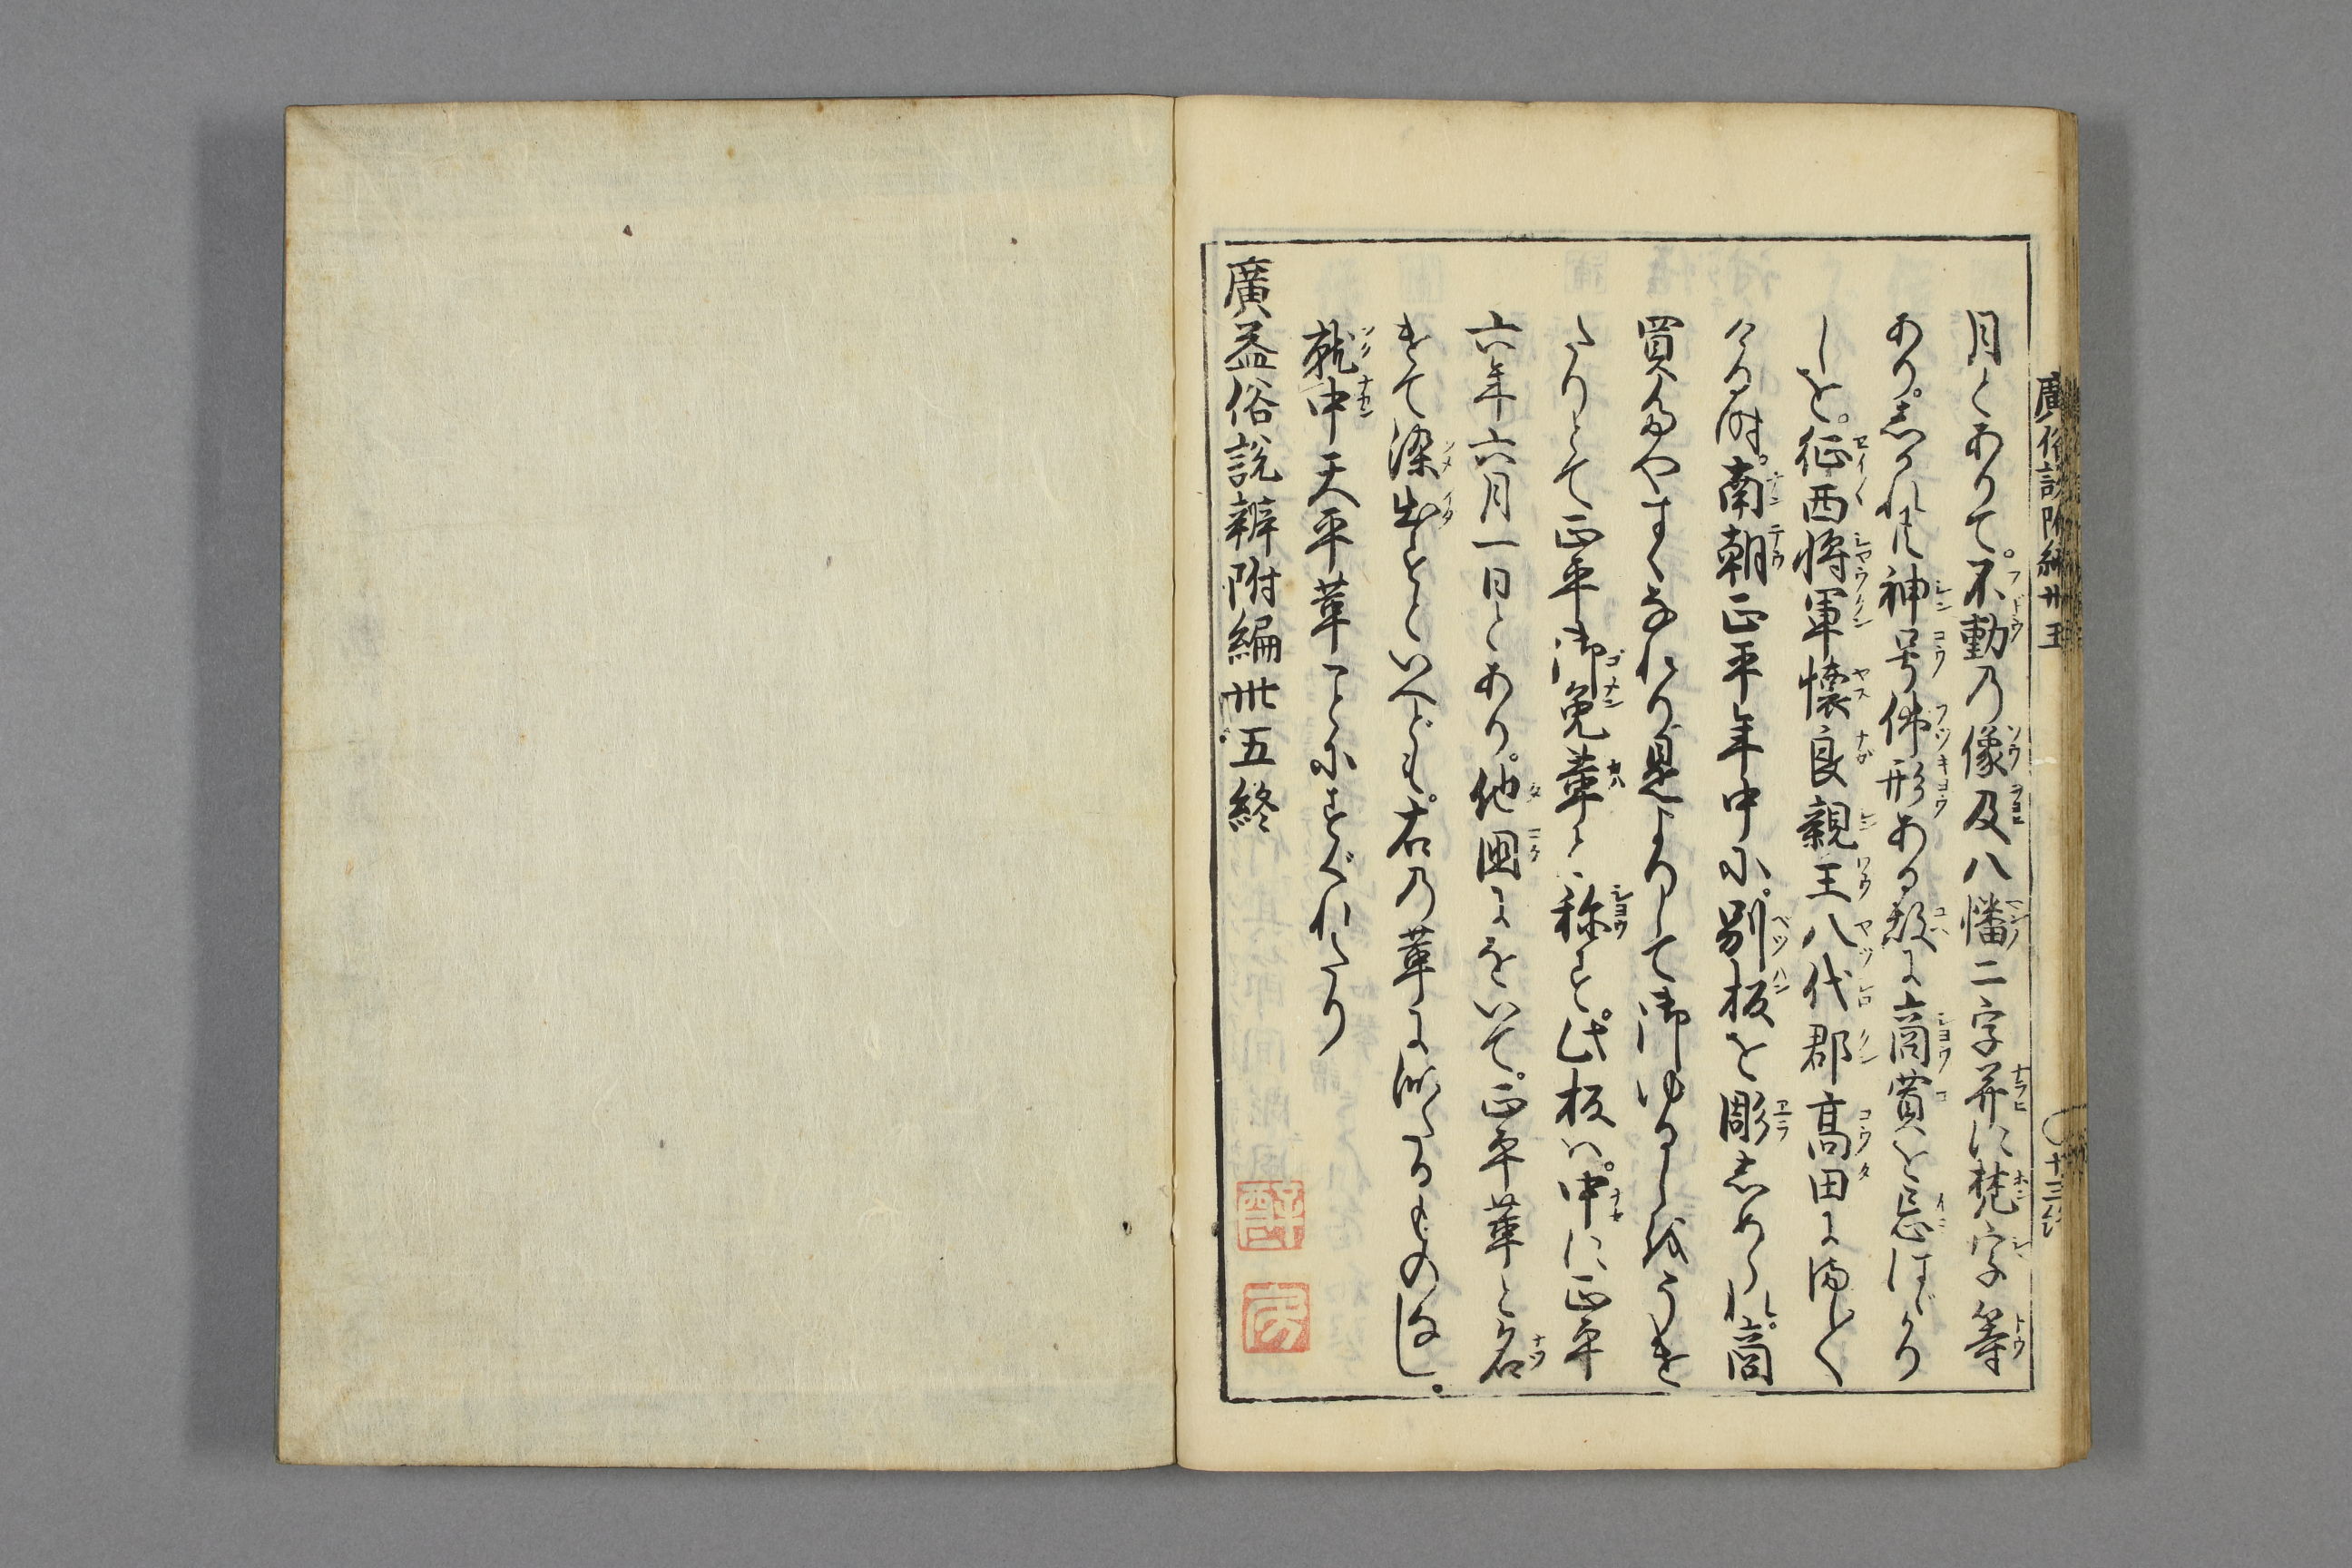 月とありて。不動乃像及八幡二字并に梵字等
あり。志かれ𪜈神号佛形ある故に商賣を忌ばかり
しを。征西将軍懐良親王八代郡高田にましく
ける時。南朝正平年中に。别板を彫志められ。商
買たやすくなれり是よりして御ゆるしをうけ
たりとて正平御免革と称す。此板は。中に正平
六年六月一日とあり。他國にをいて。正平革と名
けて染出すといへども。右乃革に似たるものなし。
就中天平革ことにすぐれたり
廣益俗説辨附編卅五終
廣俗説附編卅五
十三終